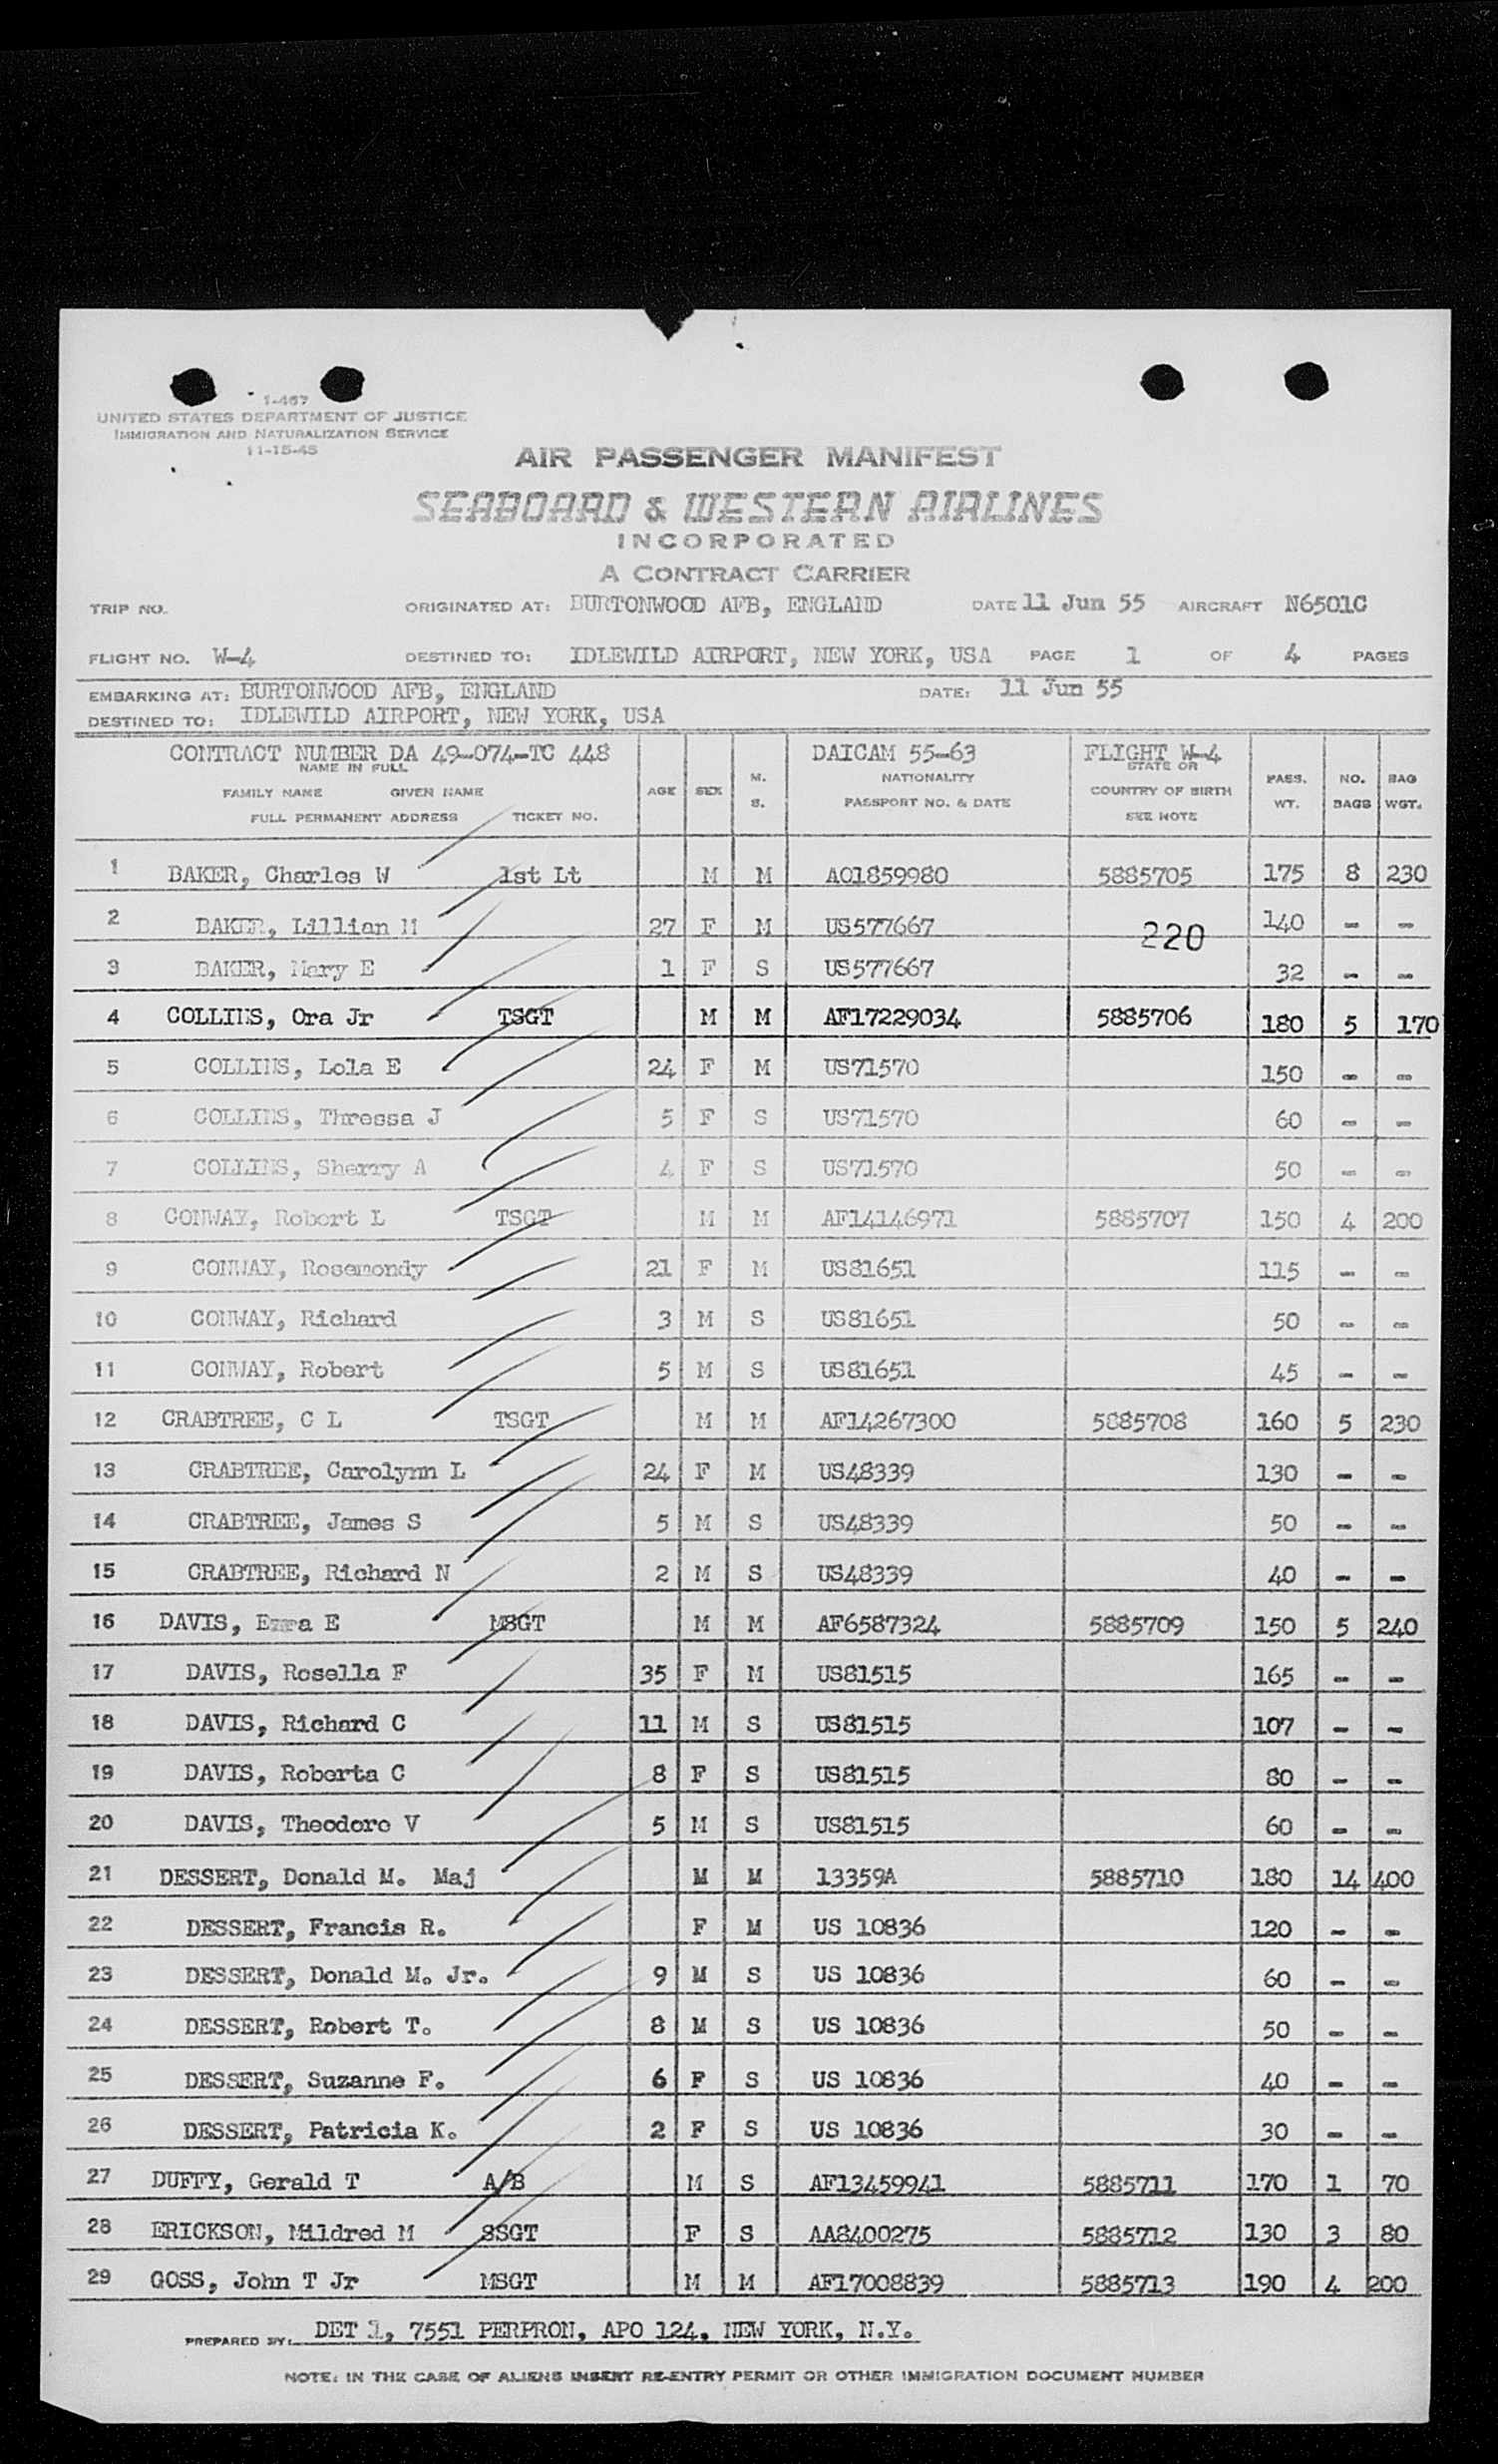 1-467
UNITED STATES DEPARTMENT OF JUSTICE
IMMIGRATION AND NATURALIZATION SERVICE
11-15-45
AIR PASSENGER MANIFEST
SEABOARD & WESTERN AIRLINES
INCORPORATED
A CONTRACT CARRIER
TRIP NO. ORIGINATED AT: BURTONWOOD AFB, ENGLAND DATE 11 Jun 55 AIRCRAFT N6501C
FLIGHT NO. W-4 DESTINED TO: IDLEWILD AIRPORT, NEW YORK, USA PAGE 1 OF 4 PAGES
EMBARKING AT: BURTONWOOD AFB, ENGLAND DATE: 11 Jun 55
DESTINED TO: IDLEWILD AIRPORT, NEW YORK, USA
CONTRACT NUMBER DA 49-074-TC 448 DAICAM 55-63 FLIGHT W-4
NAME IN FULL AGE SEX M. S. NATIONALITY STATE OR PASS. WT. NO. BAGS BAG WGT.
FAMILY NAME GIVEN NAME PASSPORT NO. & DATE COUNTRY OF BIRTH
FULL PERMANENT ADDRESS TICKET NO. SEE NOTE
1 BAKER, Charles W 1st Lt M M AO1859980 5885705 175 8 230
2 BAKER, Lillian M 27 F M US577667 220 140 - -
3 BAKER, Mary E 1 F S US577667 32 - -
4 COLLINS, Ora Jr TSGT M M AF17229034 5885706 180 5 170
5 COLLINS, Lola E 24 F M US71570 150 - -
6 COLLINS, Thressa J 5 F S US71570 60 - -
7 COLLINS, Sherry A 4 F S US71570 50 - -
8 CONWAY, Robert L TSGT M M AF14146971 5885707 150 4 200
9 CONWAY, Rosemondy 21 F M US81651 115 - -
10 CONWAY, Richard 3 M S US81651 50 - -
11 CONWAY, Robert 5 M S US81651 45 - -
12 CRABTREE, C L TSGT M M AF14267300 5885708 160 5 230
13 CRABTREE, Carolynn L 24 F M US48339 130 - -
14 CRABTREE, James S 5 M S US48339 50 - -
15 CRABTREE, Richard N 2 M S US48339 40 - -
16 DAVIS, Ezra E MSGT M M AF6587324 5885709 150 5 240
17 DAVIS, Rosella F 35 F M US81515 165 - -
18 DAVIS, Richard C 11 M S US81515 107 - -
19 DAVIS, Roberta C 8 F S US81515 80 - -
20 DAVIS, Theodore V 5 M S US81515 60 - -
21 DESSERT, Donald M. Maj M M 13359A 5885710 180 14 400
22 DESSERT, Francis R. F M US 10836 120 - -
23 DESSERT, Donald M. Jr. 9 M S US 10836 60 - -
24 DESSERT, Robert T. 8 M S US 10836 50 - -
25 DESSERT, Suzanne F. 6 F S US 10836 40 - -
26 DESSERT, Patricia K. 2 F S US 10836 30 - -
27 DUFFY, Gerald T A/B M S AF13459941 5885711 170 1 70
28 ERICKSON, Mildred M SSGT F S AA8400275 5885712 130 3 80
29 GOSS, John T Jr MSGT M M AF17008839 5885713 190 4 200
PREPARED BY: DET 1, 7551 PERPRON, APO 124, NEW YORK, N.Y.
NOTE: IN THE CASE OF ALIENS INSERT RE-ENTRY PERMIT OR OTHER IMMIGRATION DOCUMENT NUMBER